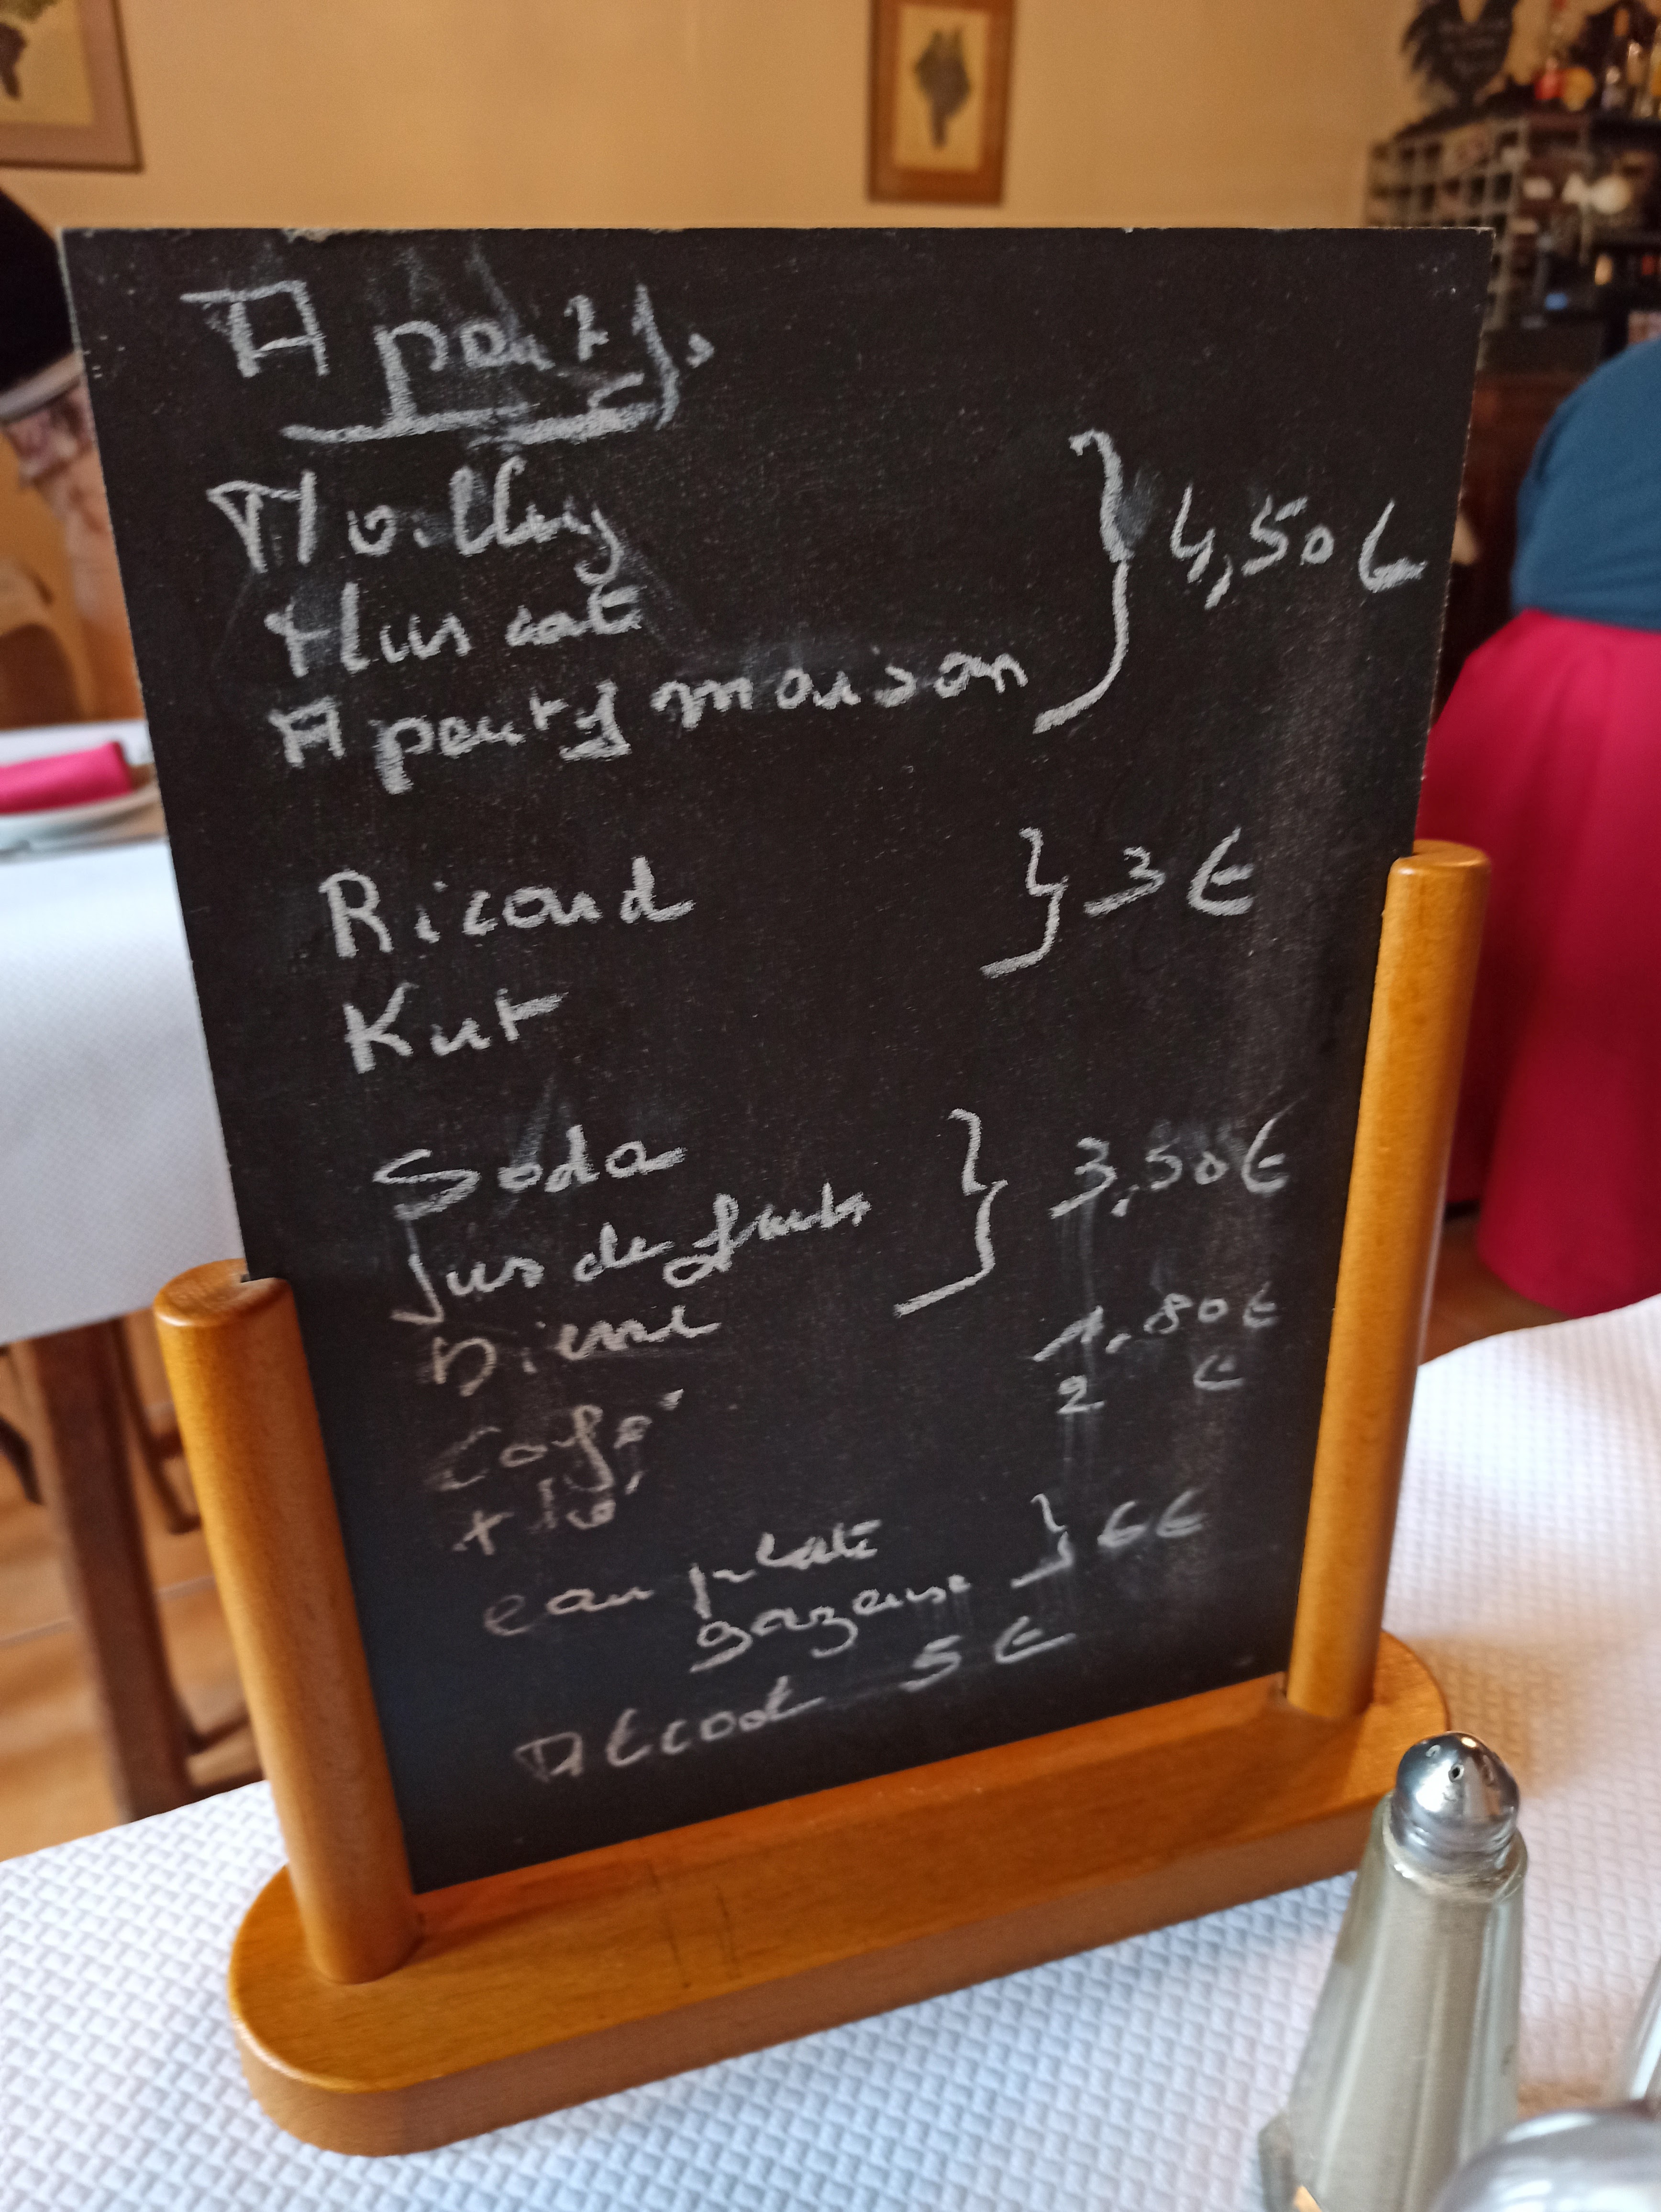 Apéritifs
Noilly } 4,50€
Muscat
Aperitif maison
Ricard } 3€
Kir
Soda } 3,50€
Jus de fruits
Bière
Café 1,80€
thé 2€
eau plate } 6€
gazeuse
Alcool 5€